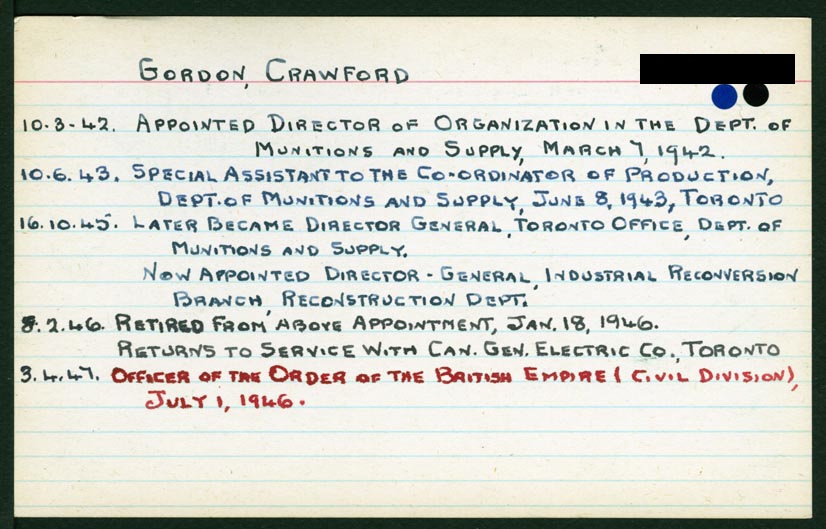 GORDON, CRAWFORD
10.3-42. APPOINTED DIRECTOR OF ORGANIZATION IN THE DEPT. OF
MUNITIONS AND SUPPLY, MARCH 7, 1942.
10.6.43. SPECIAL ASSISTANT TO THE CO-ORDINATOR OF PRODUCTION,
DEPT. OF MUNITIONS AND SUPPLY, JUNE 8, 1943, TORONTO
16.10.45. LATER BECAME DIRECTOR GENERAL, TORONTO OFFICE, DEPT. OF
MUNITIONS AND SUPPLY.
NOW APPOINTED DIRECTOR-GENERAL, INDUSTRIAL RECONVERSION
BRANCH, RECONSTRUCTION DEPT.
5.2.46. RETIRED FROM ABOVE APPOINTMENT, JAN. 18, 1946.
RETURNS TO SERVICE WITH CAN. GEN. ELECTRIC CO., TORONTO
3.4.47. OFFICER OF THE ORDER OF THE BRITISH EMPIRE (CIVIL DIVISION),
JULY 1, 1946.